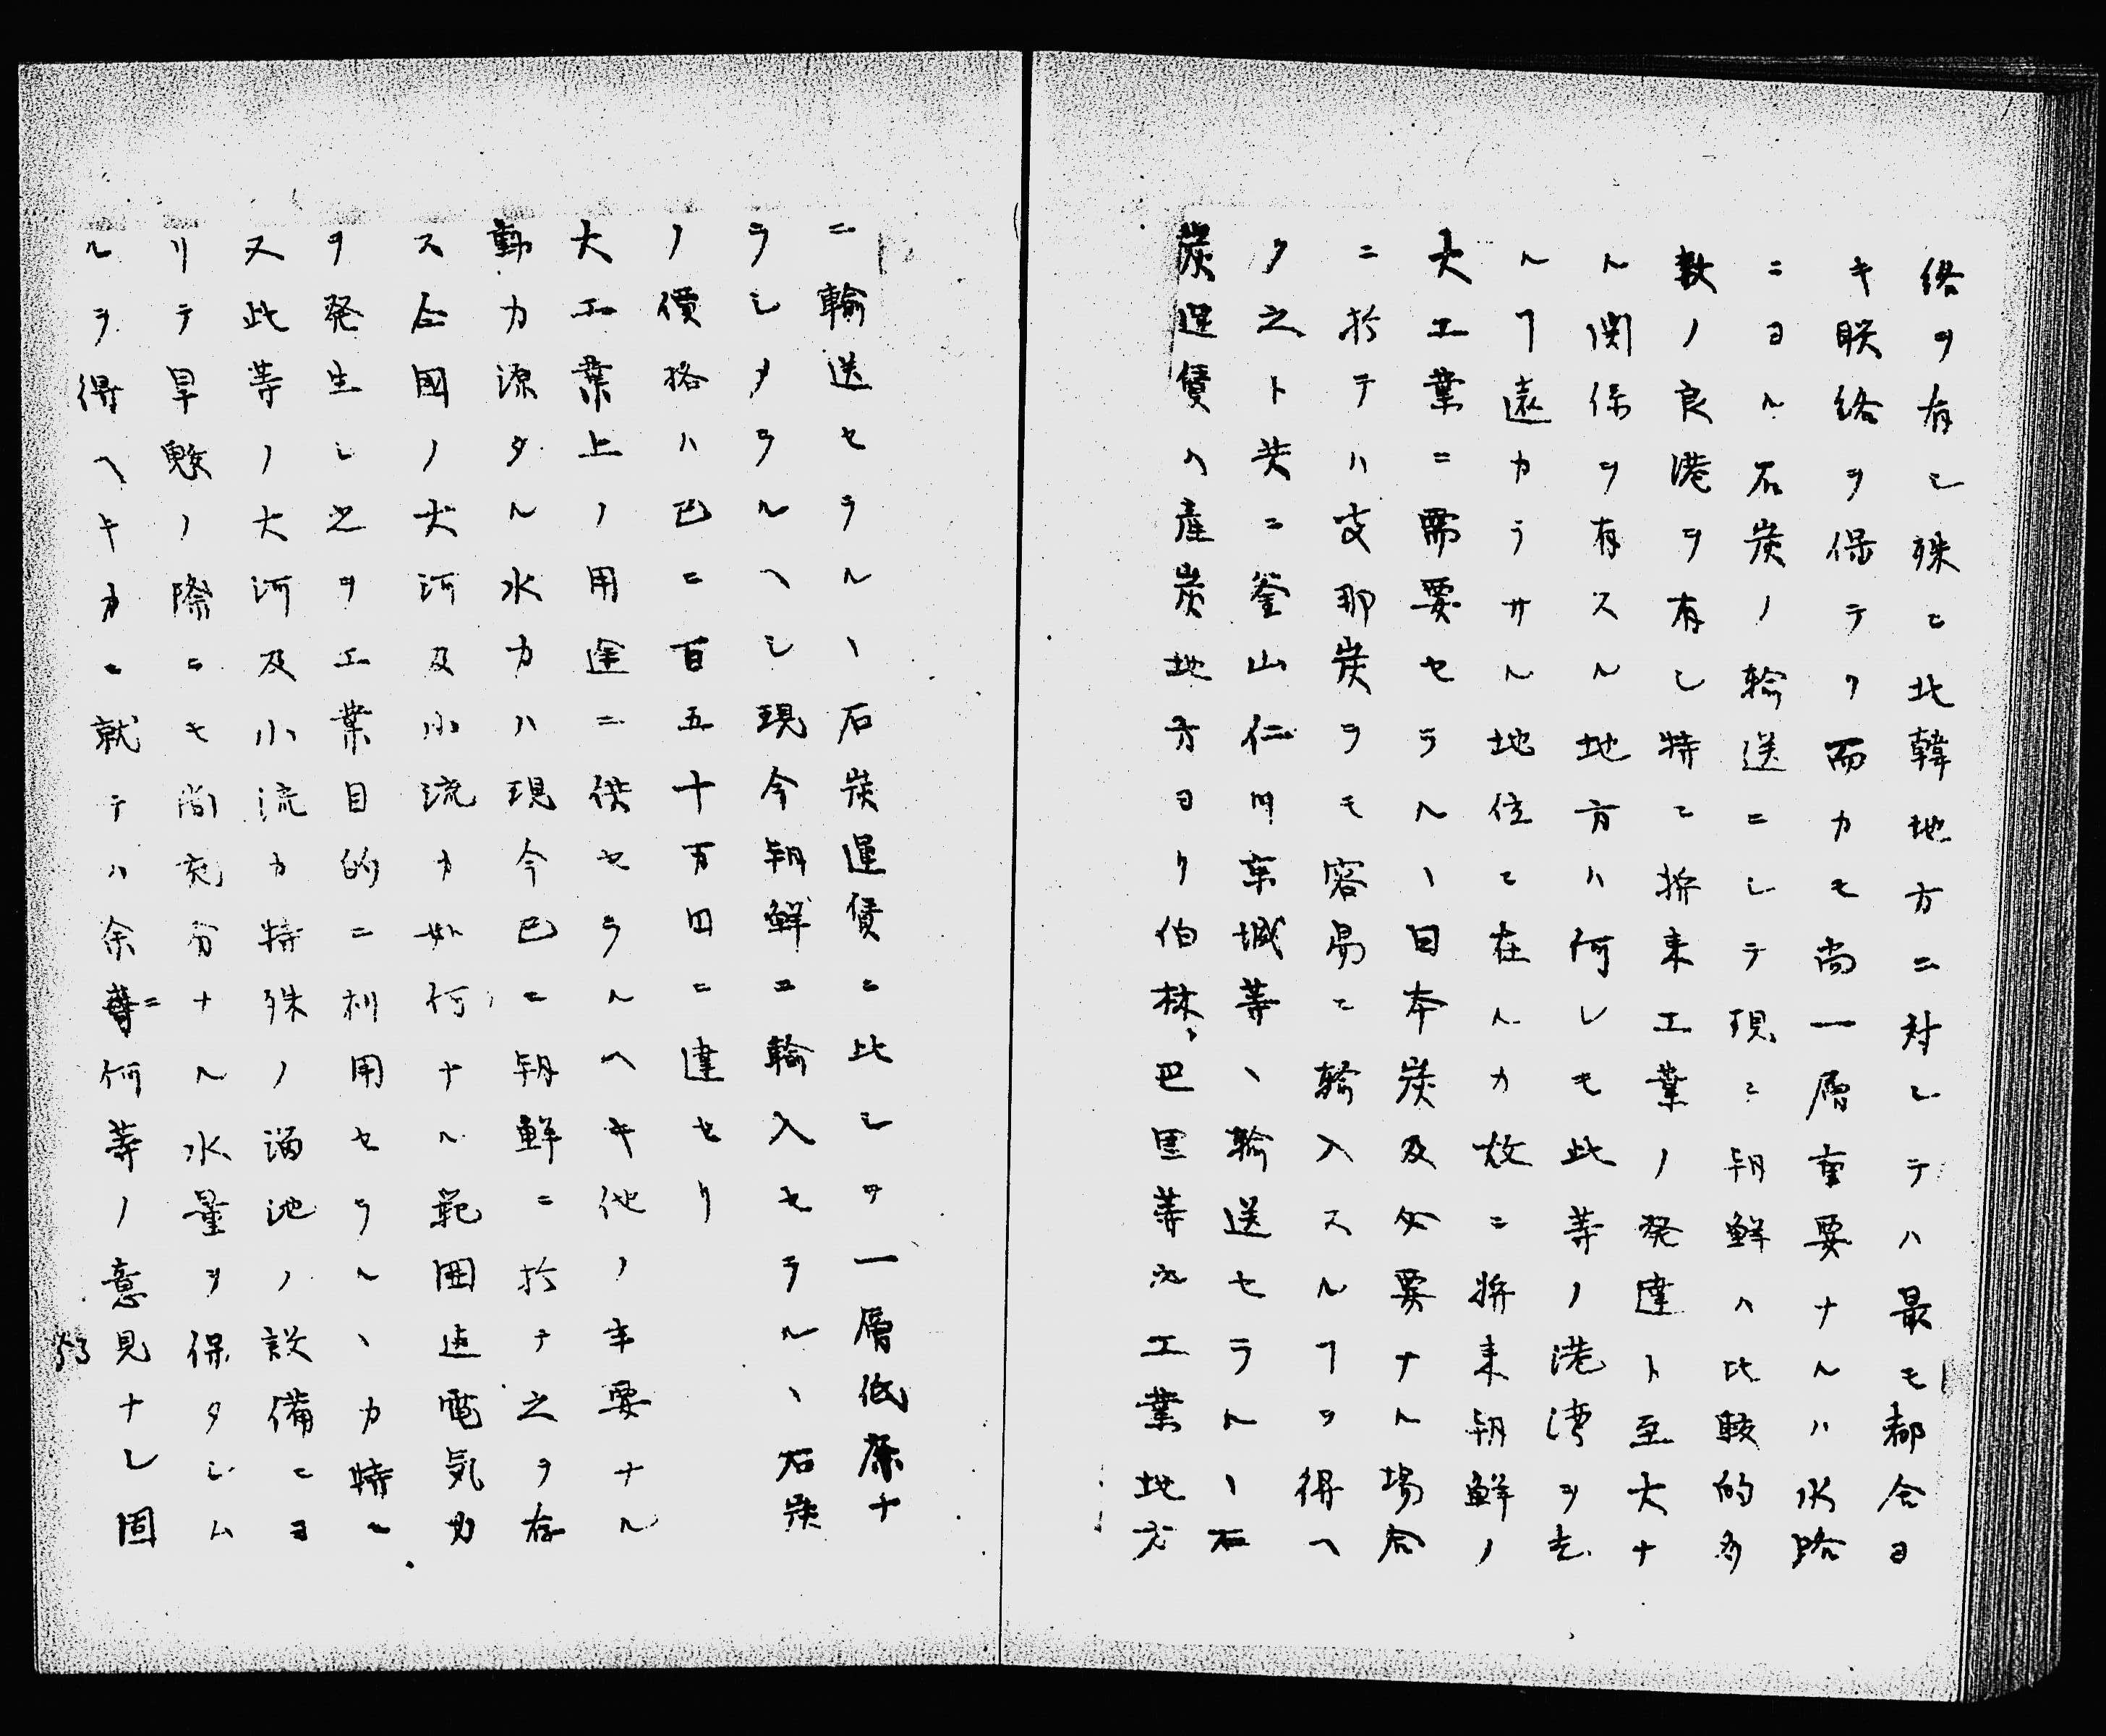 絡ヲ有シ殊ニ北韓地方ニ対シテハ最モ都合ヨ
キ聯絡ヲ保テリ而カモ尚一層重要ナルハ水路
ニヨル石炭ノ輸送ニシテ現ニ朝鮮ハ比較的多
数ノ良港ヲ有シ特ニ将来工業ノ発達ト至大ナ
ル関係ヲ有スル地方ハ何レモ此等ノ港湾ヲ去
ルヿ遠カラサル地位ニ在ルカ故ニ将来朝鮮ノ
大工業ニ需要セラルヽ日本炭及必要ナル場合
ニ於テハ支那炭ヲモ容易ニ輸入スルヿヲ得ヘ
ク之ト共ニ釜山仁川京城等ヽ輸送セラルヽ石
炭運賃ハ産炭地方ヨリ伯林、巴里等ノ工業地方
ニ輸送セラルヽ石炭運賃ニ比シヲ一層低廉ナ
ラシメラルヘシ現今朝鮮ニ輸入セラルヽ石炭
ノ價格ハ已ニ百五十万円ニ達セリ
大工業上ノ用途ニ供セラルヘキ他ノ主要ナル
動力源タル水力ハ現今已ニ朝鮮ニ於テ之ヲ存
ス仝國ノ大河及小流カ如何ナル範囲迄電気力
ヲ発生シ之ヲ工業目的ニ利用セラルヽカ特ニ
又此等ノ大河及小流カ特殊ノ溜池ノ設備ニヨ
リテ旱魃ノ際ニモ尚充分ナル水量ヲ保タシム
ルヲ得ヘキカニ就テハ余等ニ何等ノ意見ナシ固
53